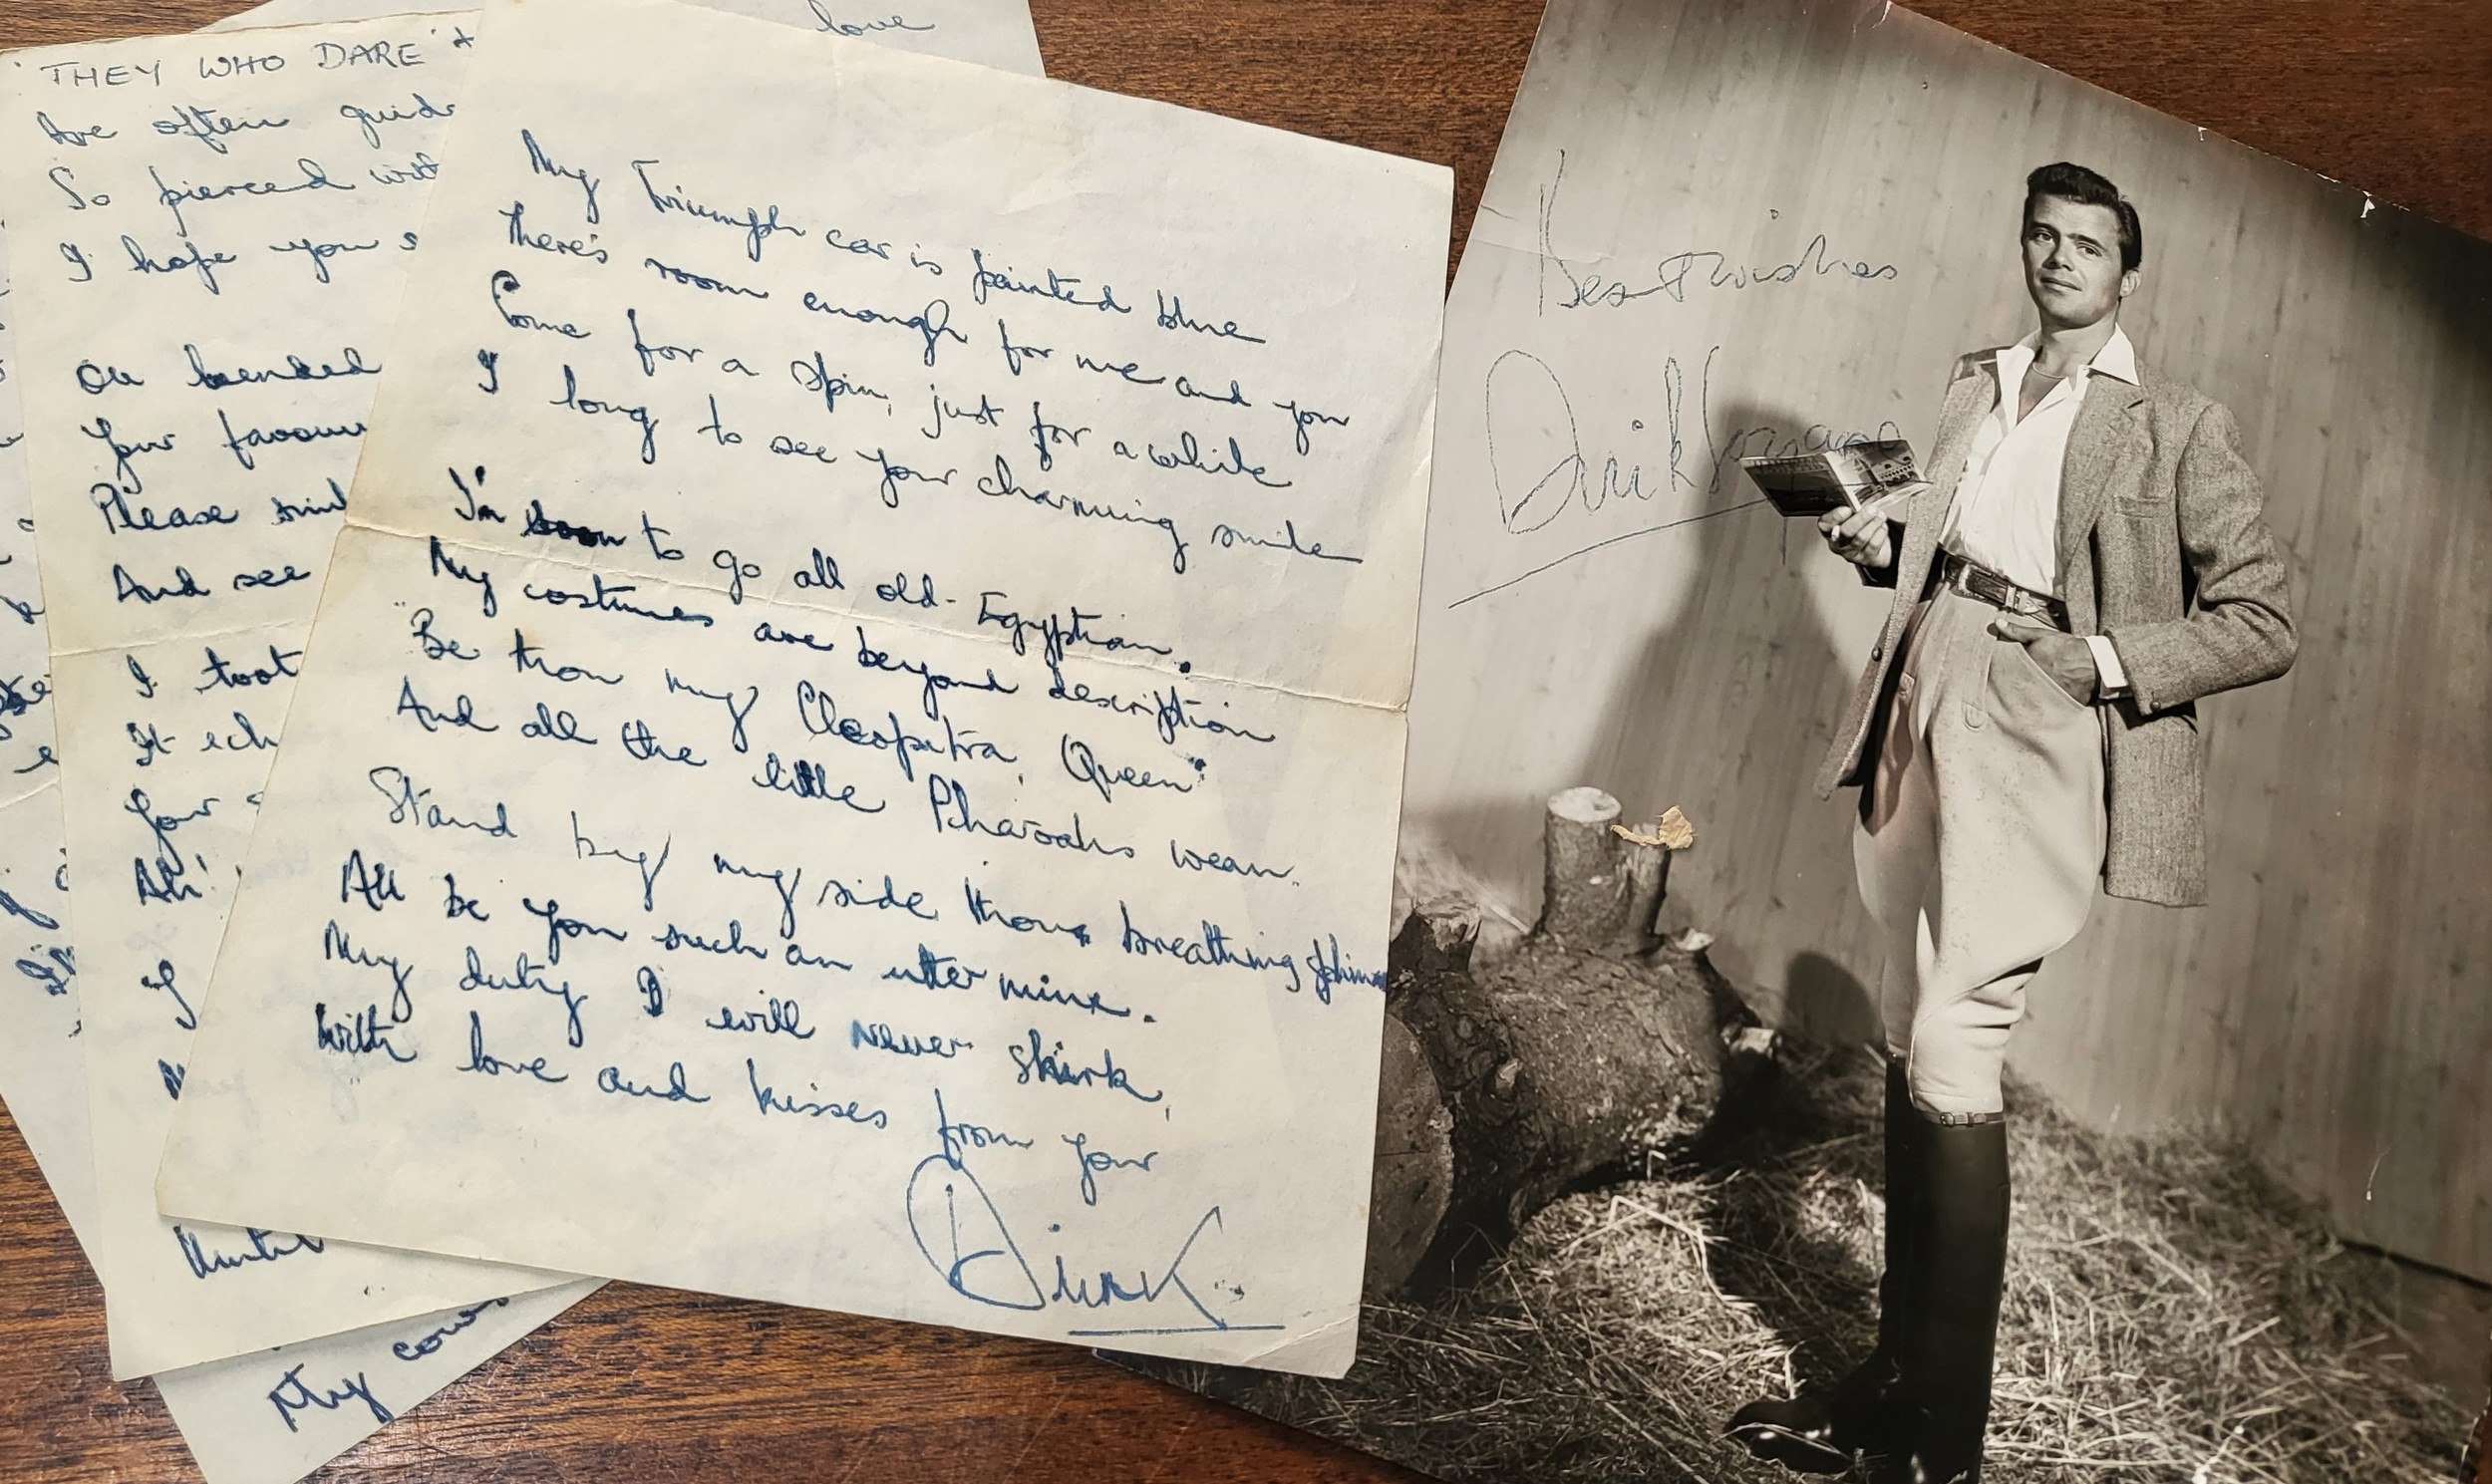 love
'THEY WHO DARE' &
Are often guid
So pierced with
I hope you s
On bended
Your favour
Please
And see
I toot
It ech
Your
Ah!
I
Until
My cows
My Triumph car is painted blue
There's room enough for me and you
Come for a spin, just for a while
I long to see your charming smile
I'm soon to go all old-Egyptian.
My costumes are beyond description
"Be thou my Cleopatra, Queen"
And all the little Pharoahs wean.
Stand by my side thou breathing sphinx
All be you such an utter minx.
My duty I will never shirk,
With love and kisses from your
Dirk
Best wishes
Dirk Bogarde